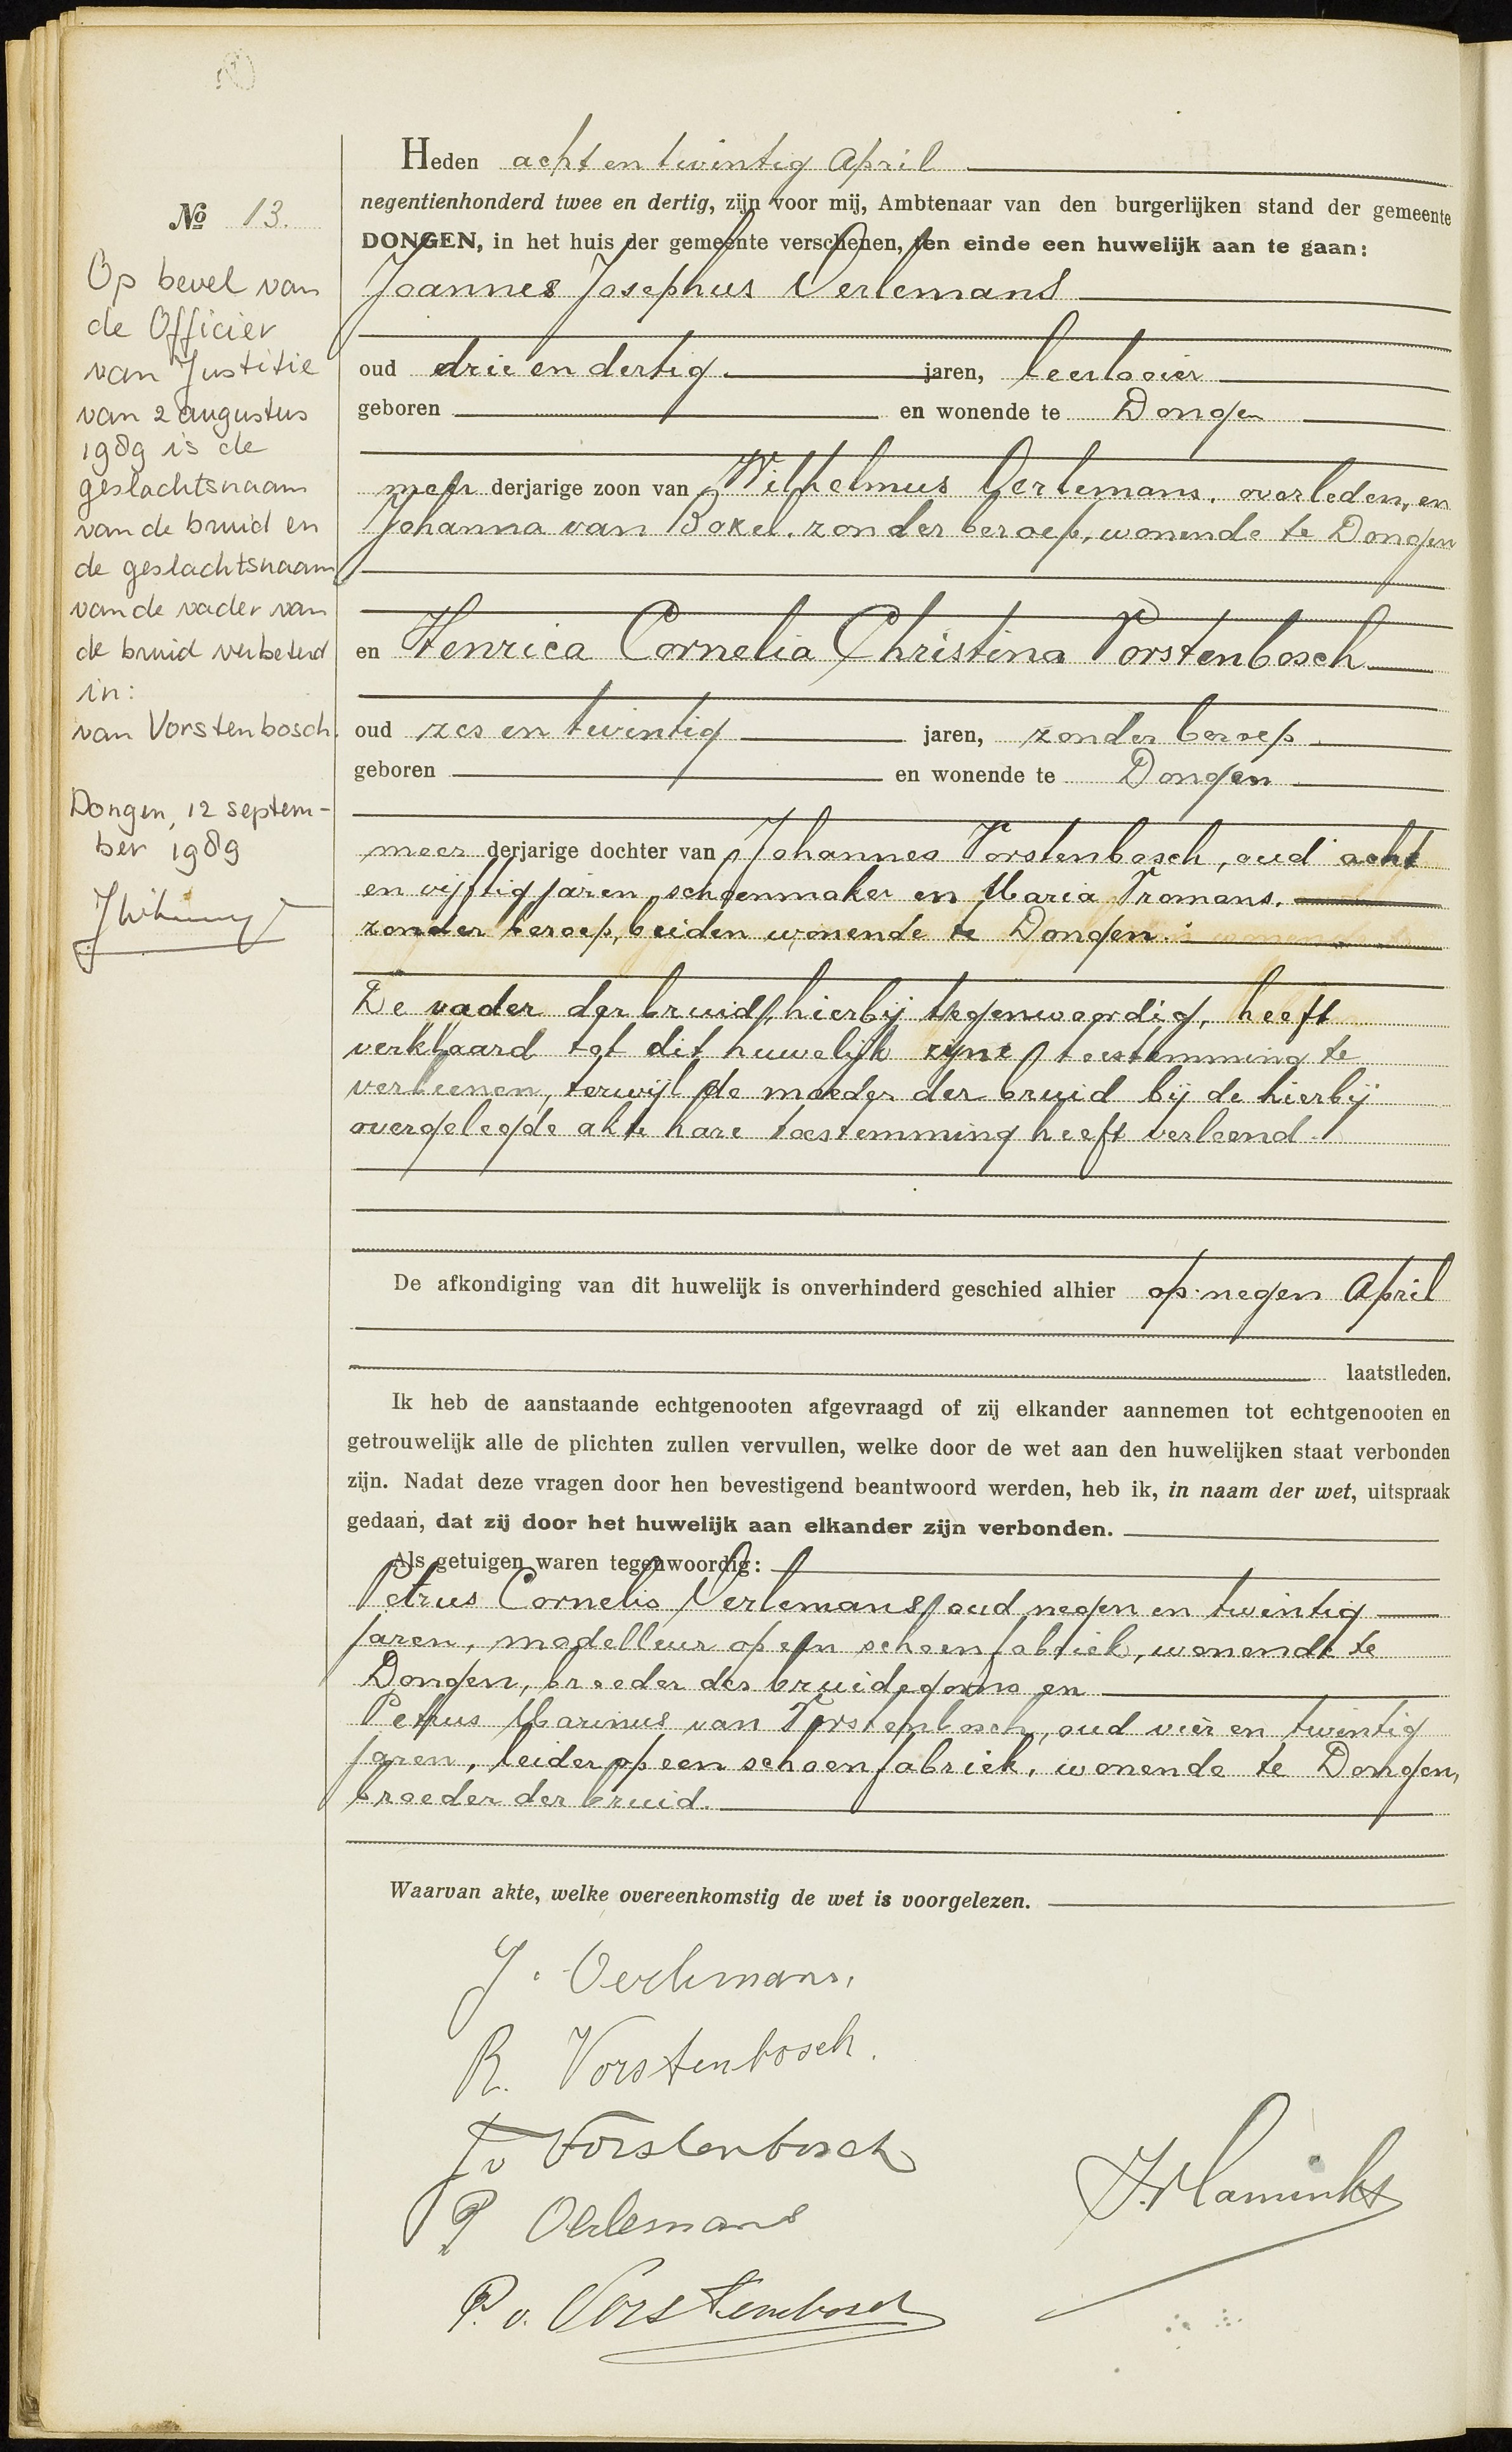 Heden acht en twintig April
negentienhonderd twee en dertig, zijn voor mij, Ambtenaar van den burgerlijken stand der gemeente
DONGEN, in het huis der gemeente verschenen, ten einde een huwelijk aan te gaan:
Joannes Josephus Oerlemans
oud drie en dertig jaren, leerlooier
geboren en wonende te Dongen
meer derjarige zoon van Wilhelmus Oerlemans, overleden, en
Johanna van Boxel, zonder beroep, wonende te Dongen
en Henrica Cornelia Christina Vorstenbosch
oud zes en twintig jaren, zonder beroep
geboren en wonende te Dongen
meer derjarige dochter van Johannes Vorstenbosch, oud acht
en vijftig jaren, schoenmaker en Maria Tromans,
zonder beroep, beiden wonende te Dongen.
De vader der bruid, hierbij tegenwoordig, heeft
verklaard tot dit huwelijk zijne toestemming te
verleenen, terwijl de moeder der bruid bij de hierbij
overgelegde akte hare toestemming heeft verleend.
De afkondiging van dit huwelijk is onverhinderd geschied alhier op negen April
laatstleden.
Ik heb de aanstaande echtgenooten afgevraagd of zij elkander aannemen tot echtgenooten en
getrouwelijk alle de plichten zullen vervullen, welke door de wet aan den huwelijken staat verbonden
zijn. Nadat deze vragen door hen bevestigend beantwoord werden, heb ik, in naam der wet, uitspraak
gedaan, dat zij door het huwelijk aan elkander zijn verbonden.
Als getuigen waren tegenwoordig:
Petrus Cornelis Oerlemans, oud negen en twintig
jaren, modelleur op een schoenfabriek, wonende te
Dongen, broeder des bruidegoms en
Petrus Marinus van Vorstenbosch, oud vier en twintig
jaren, leider op een schoenfabriek, wonende te Dongen,
broeder der bruid.
Waarvan akte, welke overeenkomstig de wet is voorgelezen.
J. Oerlemans.
R. Vorstenbosch.
J v Vorstenbosch
P Oerlemans
P. v. Vorstenbosch
No 13.
Op bevel van
de Officier
van Justitie
van 2 augustus
1989 is de
geslachtsnaam
van de bruid en
de geslachtsnaam
van de vader van
de bruid verbeterd
in:
van Vorstenbosch.
Dongen, 12 septem-
ber 1989